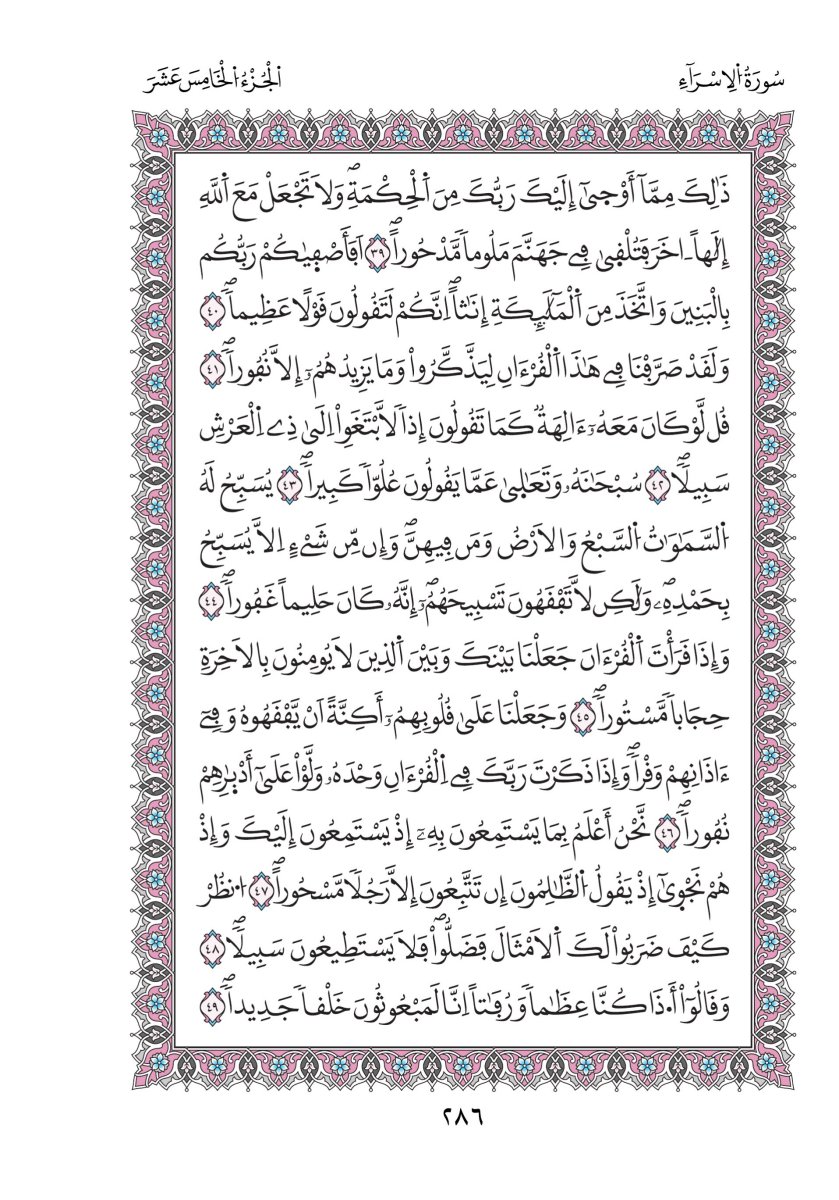 سُورَةُ اُ۬لِاسْرَآءِ
اَ۬لْجُزْءُ اُ۬لْخَامِسَ عَشَرَ
ذَٰلِكَ مِمَّآ أَوْح۪يٰٓ إِلَيْكَ رَبُّكَ مِنَ اَ۬لْحِكْمَةِۖ وَلَا تَجْعَلْ مَعَ اَ۬للَّهِ
إِلَٰهاً ـاخَرَ فَتُلْق۪يٰ فِے جَهَنَّمَ مَلُوماٗ مَّدْحُوراًۖ ٣٩ اَفَأَصْف۪يٰكُمْ رَبُّكُم
بِالْبَنِينَ وَاتَّخَذَ مِنَ اَ۬لْمَلَٰٓئِكَةِ إِنَٰثاًۖ اِنَّكُمْ لَتَقُولُونَ قَوْلًا عَظِيماٗۖ ٤٠
وَلَقَدْ صَرَّفْنَا فِے هَٰذَا اَ۬لْقُرْءَانِ لِيَذَّكَّرُواْ وَمَا يَزِيدُهُمُۥٓ إِلَّا نُفُوراٗۖ ٤١
قُل لَّوْ كَانَ مَعَهُۥٓ ءَالِهَةٞ كَمَا تَقُولُونَ إِذاٗ لَّابْتَغَوِاْ اِلَيٰ ذِے اِ۬لْعَرْشِ
سَبِيلاٗۖ ٤٢ سُبْحَٰنَهُۥ وَتَعَٰل۪يٰ عَمَّا يَقُولُونَ عُلُوّاٗ كَبِيراٗۖ ٤٣ يُسَبِّحُ لَهُ
اُ۬لسَّمَٰوَٰتُ اُ۬لسَّبْعُ وَالَارْضُ وَمَن فِيهِنَّۖ وَإِن مِّن شَےْءٍ اِلَّا يُسَبِّحُ
بِحَمْدِهِۦۖ وَلَٰكِن لَّا تَفْقَهُونَ تَسْبِيحَهُمُۥٓۖ إِنَّهُۥ كَانَ حَلِيماً غَفُوراٗۖ ٤٤
وَإِذَا قَرَأْتَ اَ۬لْقُرْءَانَ جَعَلْنَا بَيْنَكَ وَبَيْنَ اَ۬لذِينَ لَا يُومِنُونَ بِالَاخِرَةِ
حِجَاباٗ مَّسْتُوراٗۖ ٤٥ وَجَعَلْنَا عَلَيٰ قُلُوبِهِمُۥٓ أَكِنَّةً اَنْ يَّفْقَهُوهُ وَفِےٓ
ءَاذَانِهِمْ وَقْراٗۖ وَإِذَا ذَكَرْتَ رَبَّكَ فِے اِ۬لْقُرْءَانِ وَحْدَهُۥ وَلَّوْاْ عَلَيٰٓ أَدْبٰ۪رِهِمْ
نُفُوراٗۖ ٤٦ نَّحْنُ أَعْلَمُ بِمَا يَسْتَمِعُونَ بِهِۦٓ إِذْ يَسْتَمِعُونَ إِلَيْكَ وَإِذْ
هُمْ نَجْو۪يٰٓ إِذْ يَقُولُ اُ۬لظَّٰلِمُونَ إِن تَتَّبِعُونَ إِلَّا رَجُلاٗ مَّسْحُوراًۖ ٤٧ اُ۟نظُرْ
كَيْفَ ضَرَبُواْ لَكَ اَ۬لَامْثَالَ فَضَلُّواْۖ فَلَا يَسْتَطِيعُونَ سَبِيلاٗۖ ٤٨
وَقَالُوٓاْ أَ.ذَا كُنَّا عِظَٰماٗ وَرُفَٰتاً اِنَّا لَمَبْعُوثُونَ خَلْقاٗ جَدِيداٗۖ ٤٩
٢٨٦